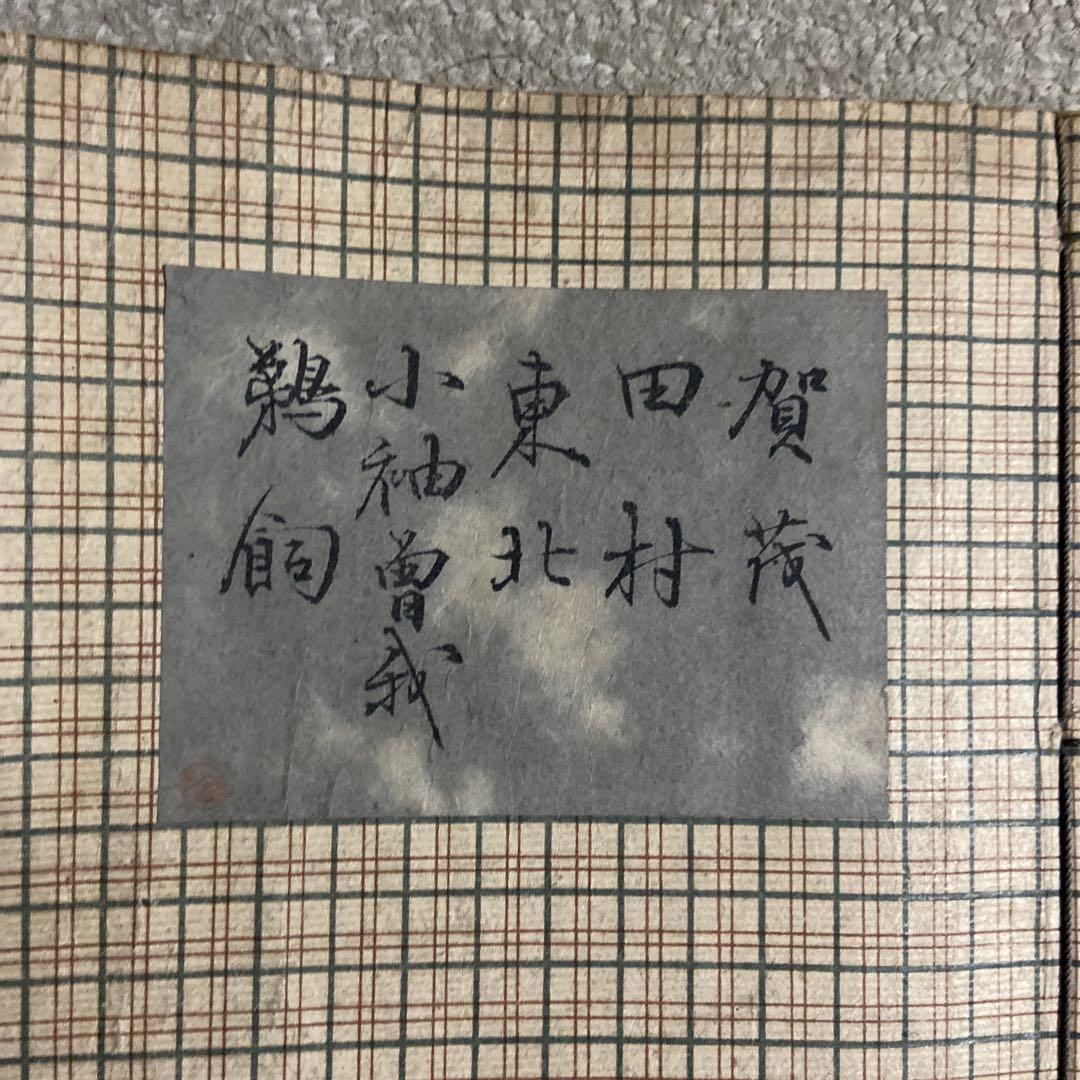 賀茂
田村
東北
小袖曽我
鵜飼